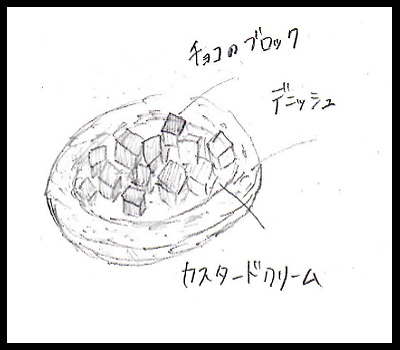 チョコのブロック
デニッシュ
カスタードクリーム